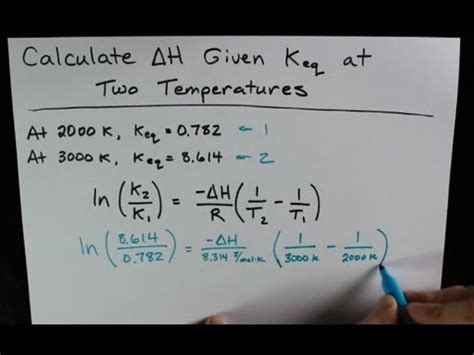 Calculate ΔH Given Keq at
Two Temperatures
At 2000 K, Keq = 0.782 ← 1
At 3000 K, Keq = 8.614 ← 2
ln(K2/K1) = -ΔH/R (1/T2 - 1/T1)
ln(8.614/0.782) = -ΔH/8.314 J/mol·K (1/3000 K - 1/2000 K)